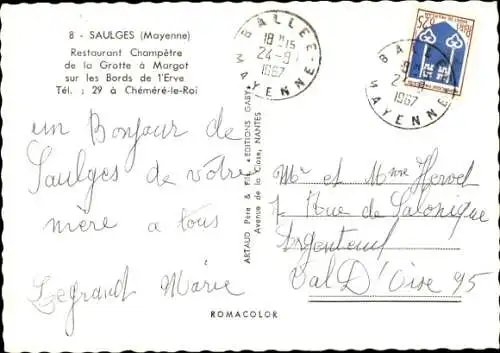 8 - SAULGES (Mayenne)
Restaurant Champêtre
de la Grotte à Margot
sur les Bords de l'Erve
Tél. : 29 à Chéméré-le-Roi
un Bonjour de
Saulges de votre
mère a tous
Legrand Marie
ARTAUD Père & Fils "EDITIONS GABY"
Avenue de la Close, NANTES
BALLEE
18H15
24-9
1967
MAYENNE
BALLEE
1967
MAYENNE
0,25
Mr et Mme Hervet
7 Rue de Salonique
Argenteuil
Val D'Oise 95
ROMACOLOR